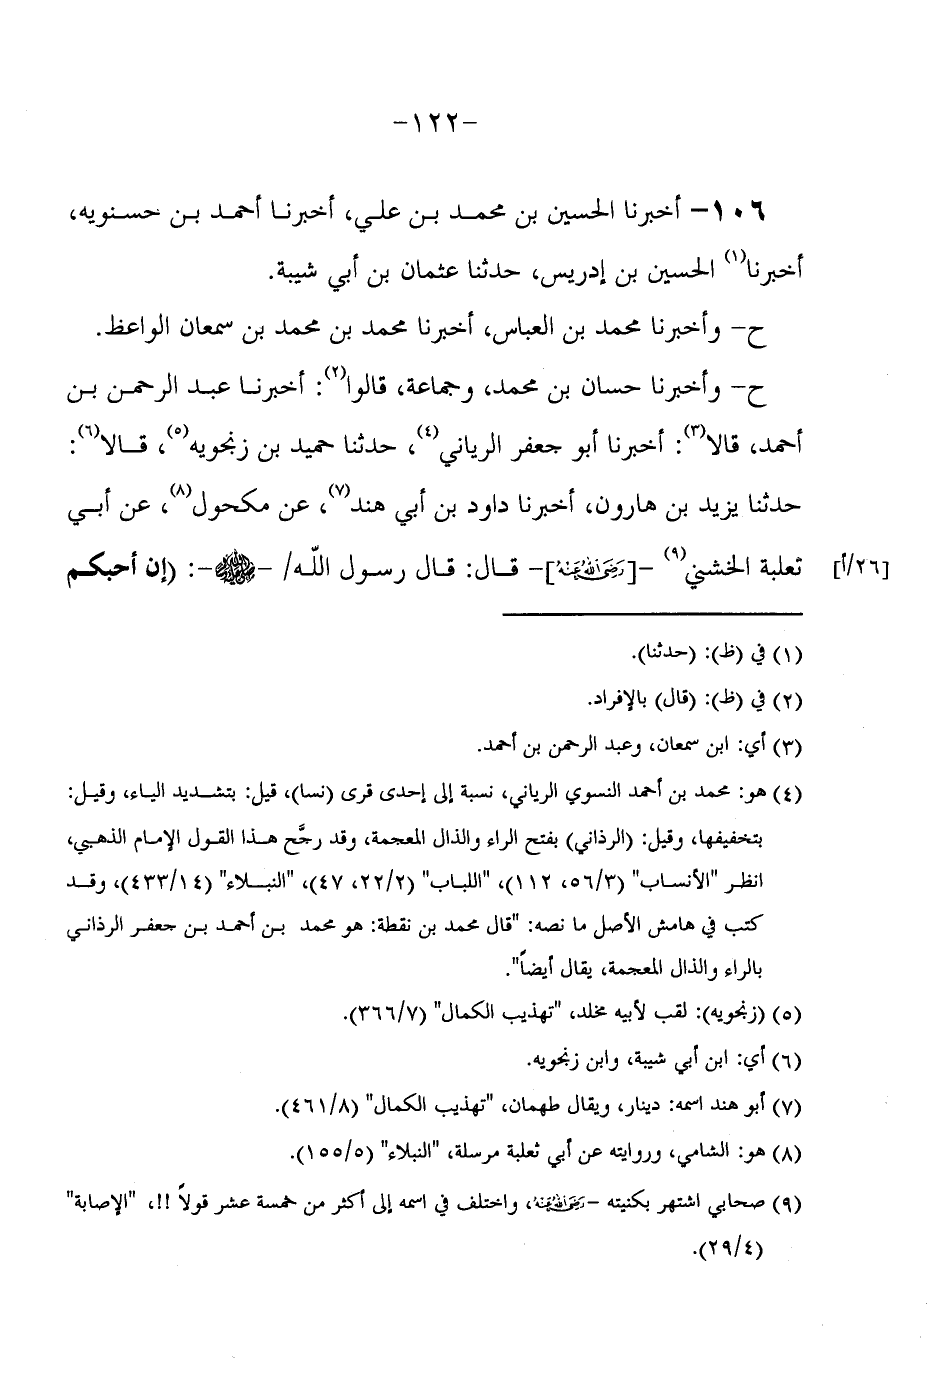 -١٢٢-
١٠٦- أخبرنا الحسين بن محمد بن علي، أخبرنا أحمد بن حسنويه،
أخبرنا(١) الحسين بن إدريس، حدثنا عثمان بن أبي شيبة.
ح- وأخبرنا محمد بن العباس، أخبرنا محمد بن محمد بن سمعان الواعظ.
ح- وأخبرنا حسان بن محمد، وجماعة، قالوا(٢): أخبرنا عبد الرحمن بن
أحمد، قالا(٣): أخبرنا أبو جعفر الرياني(٤)، حدثنا حميد بن زنجويه(٥)، قالا(٦):
حدثنا يزيد بن هارون، أخبرنا داود بن أبي هند(٧)، عن مكحول(٨)، عن أبي
ثعلبة الخشني(٩) -[رَضِيَ اللهُ عَنْهُ]- قال: قال رسول اللّه/ -ﷺ-: (إن أحبكم [٢٦/أ]
(١) في (ظ): (حدثنا).
(٢) في (ظ): (قال) بالإفراد.
(٣) أي: ابن سمعان، وعبد الرحمن بن أحمد.
(٤) هو: محمد بن أحمد النسوي الرياني، نسبة إلى إحدى قرى (نسا)، قيل: بتشديد الياء، وقيل:
بتخفيفها، وقيل: (الرذاني) بفتح الراء والذال المعجمة، وقد رجَّح هذا القول الإمام الذهبي،
انظر "الأنساب" (٥٦/٣، ١١٢)، "اللباب" (٢٢/٢، ٤٧)، "النبلاء" (٤٣٣/١٤)، وقد
كتب في هامش الأصل ما نصه: "قال محمد بن نقطة: هو محمد بن أحمد بن جعفر الرذاني
بالراء والذال المعجمة، يقال أيضاً".
(٥) (زنجويه): لقب لأبيه مخلد، "تهذيب الكمال" (٣٦٦/٧).
(٦) أي: ابن أبي شيبة، وابن زنجويه.
(٧) أبو هند اسمه: دينار، ويقال طهمان، "تهذيب الكمال" (٤٦١/٨).
(٨) هو: الشامي، وروايته عن أبي ثعلبة مرسلة، "النبلاء" (١٥٥/٥).
(٩) صحابي اشتهر بكنيته -رَضِيَ اللهُ عَنْهُ، واختلف في اسمه إلى أكثر من خمسة عشر قولاً !!، "الإصابة"
(٢٩/٤).